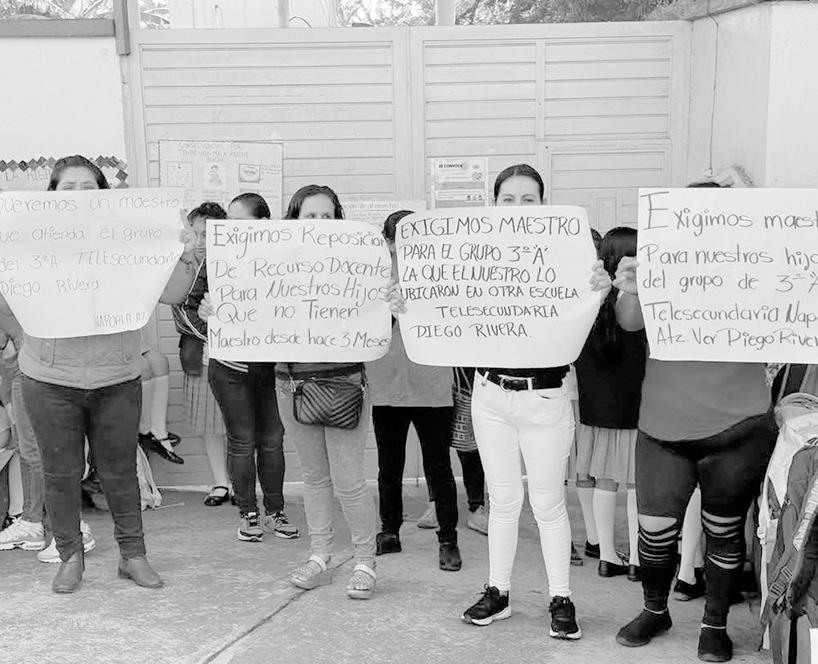 Queremos un maestro
que atienda el grupo
del 3ºA TELESecundaria
Diego Rivera
NAPOALA ATZ.
Exigimos Reposición
De Recurso Docente
Para Nuestros Hijos
Que no Tienen
Maestro desde hace 3 Meses
EXIGIMOS MAESTRO
PARA EL GRUPO 3º"A"
LA QUE EL NUESTRO LO
UBICARON EN OTRA ESCUELA
TELESECUNDARIA
DIEGO RIVERA.
Exigimos maest
Para nuestros hijo
del grupo de 3º"A
Telesecundaria Napo
Atz Ver Diego River